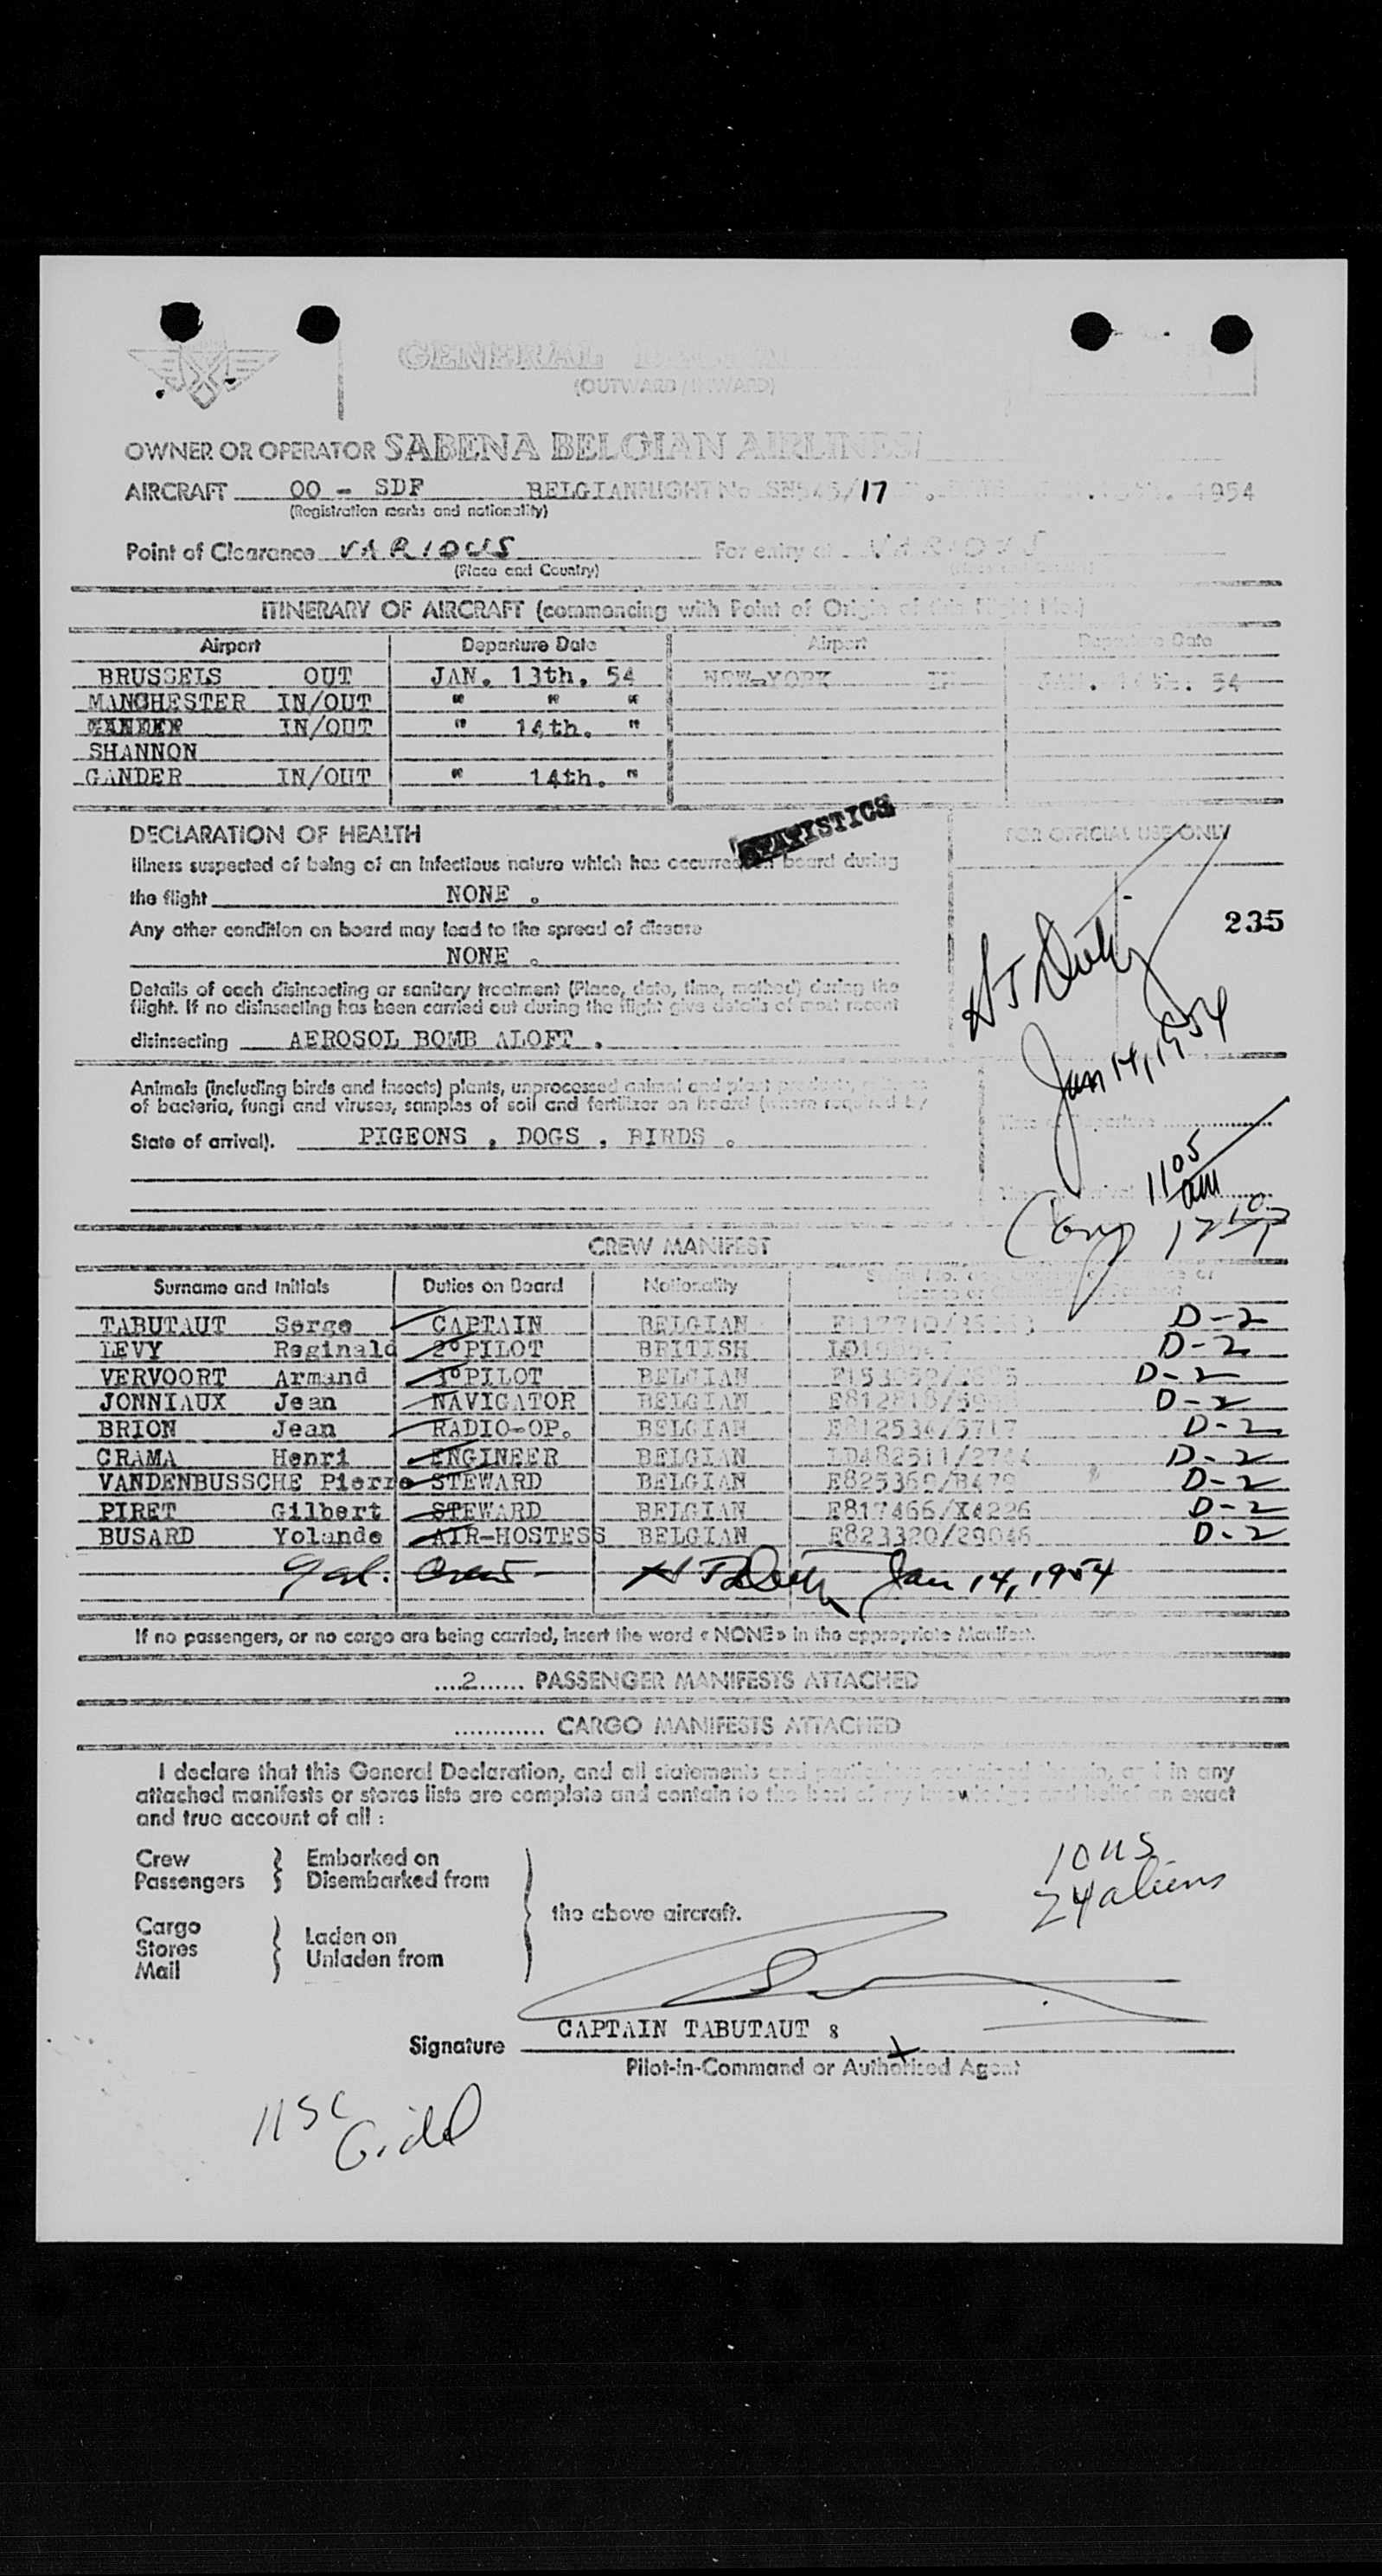 GENERAL
(OUTWARD/INWARD)
OWNER OR OPERATOR SABENA BELGIAN AIRLINES
AIRCRAFT OO - SDF BELGIAN FLIGHT No SN545/17 1954
(Registration marks and nationality)
Point of Clearance VARIOUS For entry at VARIOUS
(Place and Country)
ITINERARY OF AIRCRAFT (commencing with Point of Origin of this Flight No.)
Airport Departure Date Airport Departure Date
BRUSSELS OUT JAN. 13th. 54 NEW-YORK IN JAN. 14th. 54
MANCHESTER IN/OUT " " "
GANDER IN/OUT " 14th. "
SHANNON
GANDER IN/OUT " 14th. "
STATISTICS
DECLARATION OF HEALTH FOR OFFICIAL USE ONLY
Illness suspected of being of an infectious nature which has occurred on board during
the flight NONE .
235
Any other condition on board may lead to the spread of disease
NONE .
Details of each disinsecting or sanitary treatment (Place, date, time, method) during the
flight. If no disinsecting has been carried out during the flight give details of most recent
disinsecting AEROSOL BOMB ALOFT .
Jan 14, 1954
Animals (including birds and insects) plants, unprocessed animal and plant products,
of bacteria, fungi and viruses, samples of soil and fertilizer on board (where required by
State of arrival). PIGEONS , DOGS , BIRDS .
1105 am
CREW MANIFEST
Surname and Initials Duties on Board Nationality
TABUTAUT Serge CAPTAIN BELGIAN D-2
LEVY Reginald 2°PILOT BRITISH D-2
VERVOORT Armand 1°PILOT BELGIAN D-2
JONNIAUX Jean NAVIGATOR BELGIAN D-2
BRION Jean RADIO-OP. BELGIAN E812534/5717 D-2
CRAMA Henri ENGINEER BELGIAN D-2
VANDENBUSSCHE Pierre STEWARD BELGIAN E825369/B479 D-2
PIRET Gilbert STEWARD BELGIAN E817466/X4226 D-2
BUSARD Yolande AIR-HOSTESS BELGIAN E823320/29046 D-2
Jan 14, 1954
If no passengers, or no cargo are being carried, insert the word « NONE » in the appropriate Manifest.
....2...... PASSENGER MANIFESTS ATTACHED
............ CARGO MANIFESTS ATTACHED
I declare that this General Declaration, and all statements and particulars contained therein, and in any
attached manifests or stores lists are complete and contain to the best of my knowledge and belief an exact
and true account of all :
Crew Embarked on
Passengers Disembarked from
the above aircraft.
Cargo
Stores Laden on
Mail Unladen from
10 US
24 aliens
CAPTAIN TABUTAUT
Signature
Pilot-in-Command or Authorised Agent